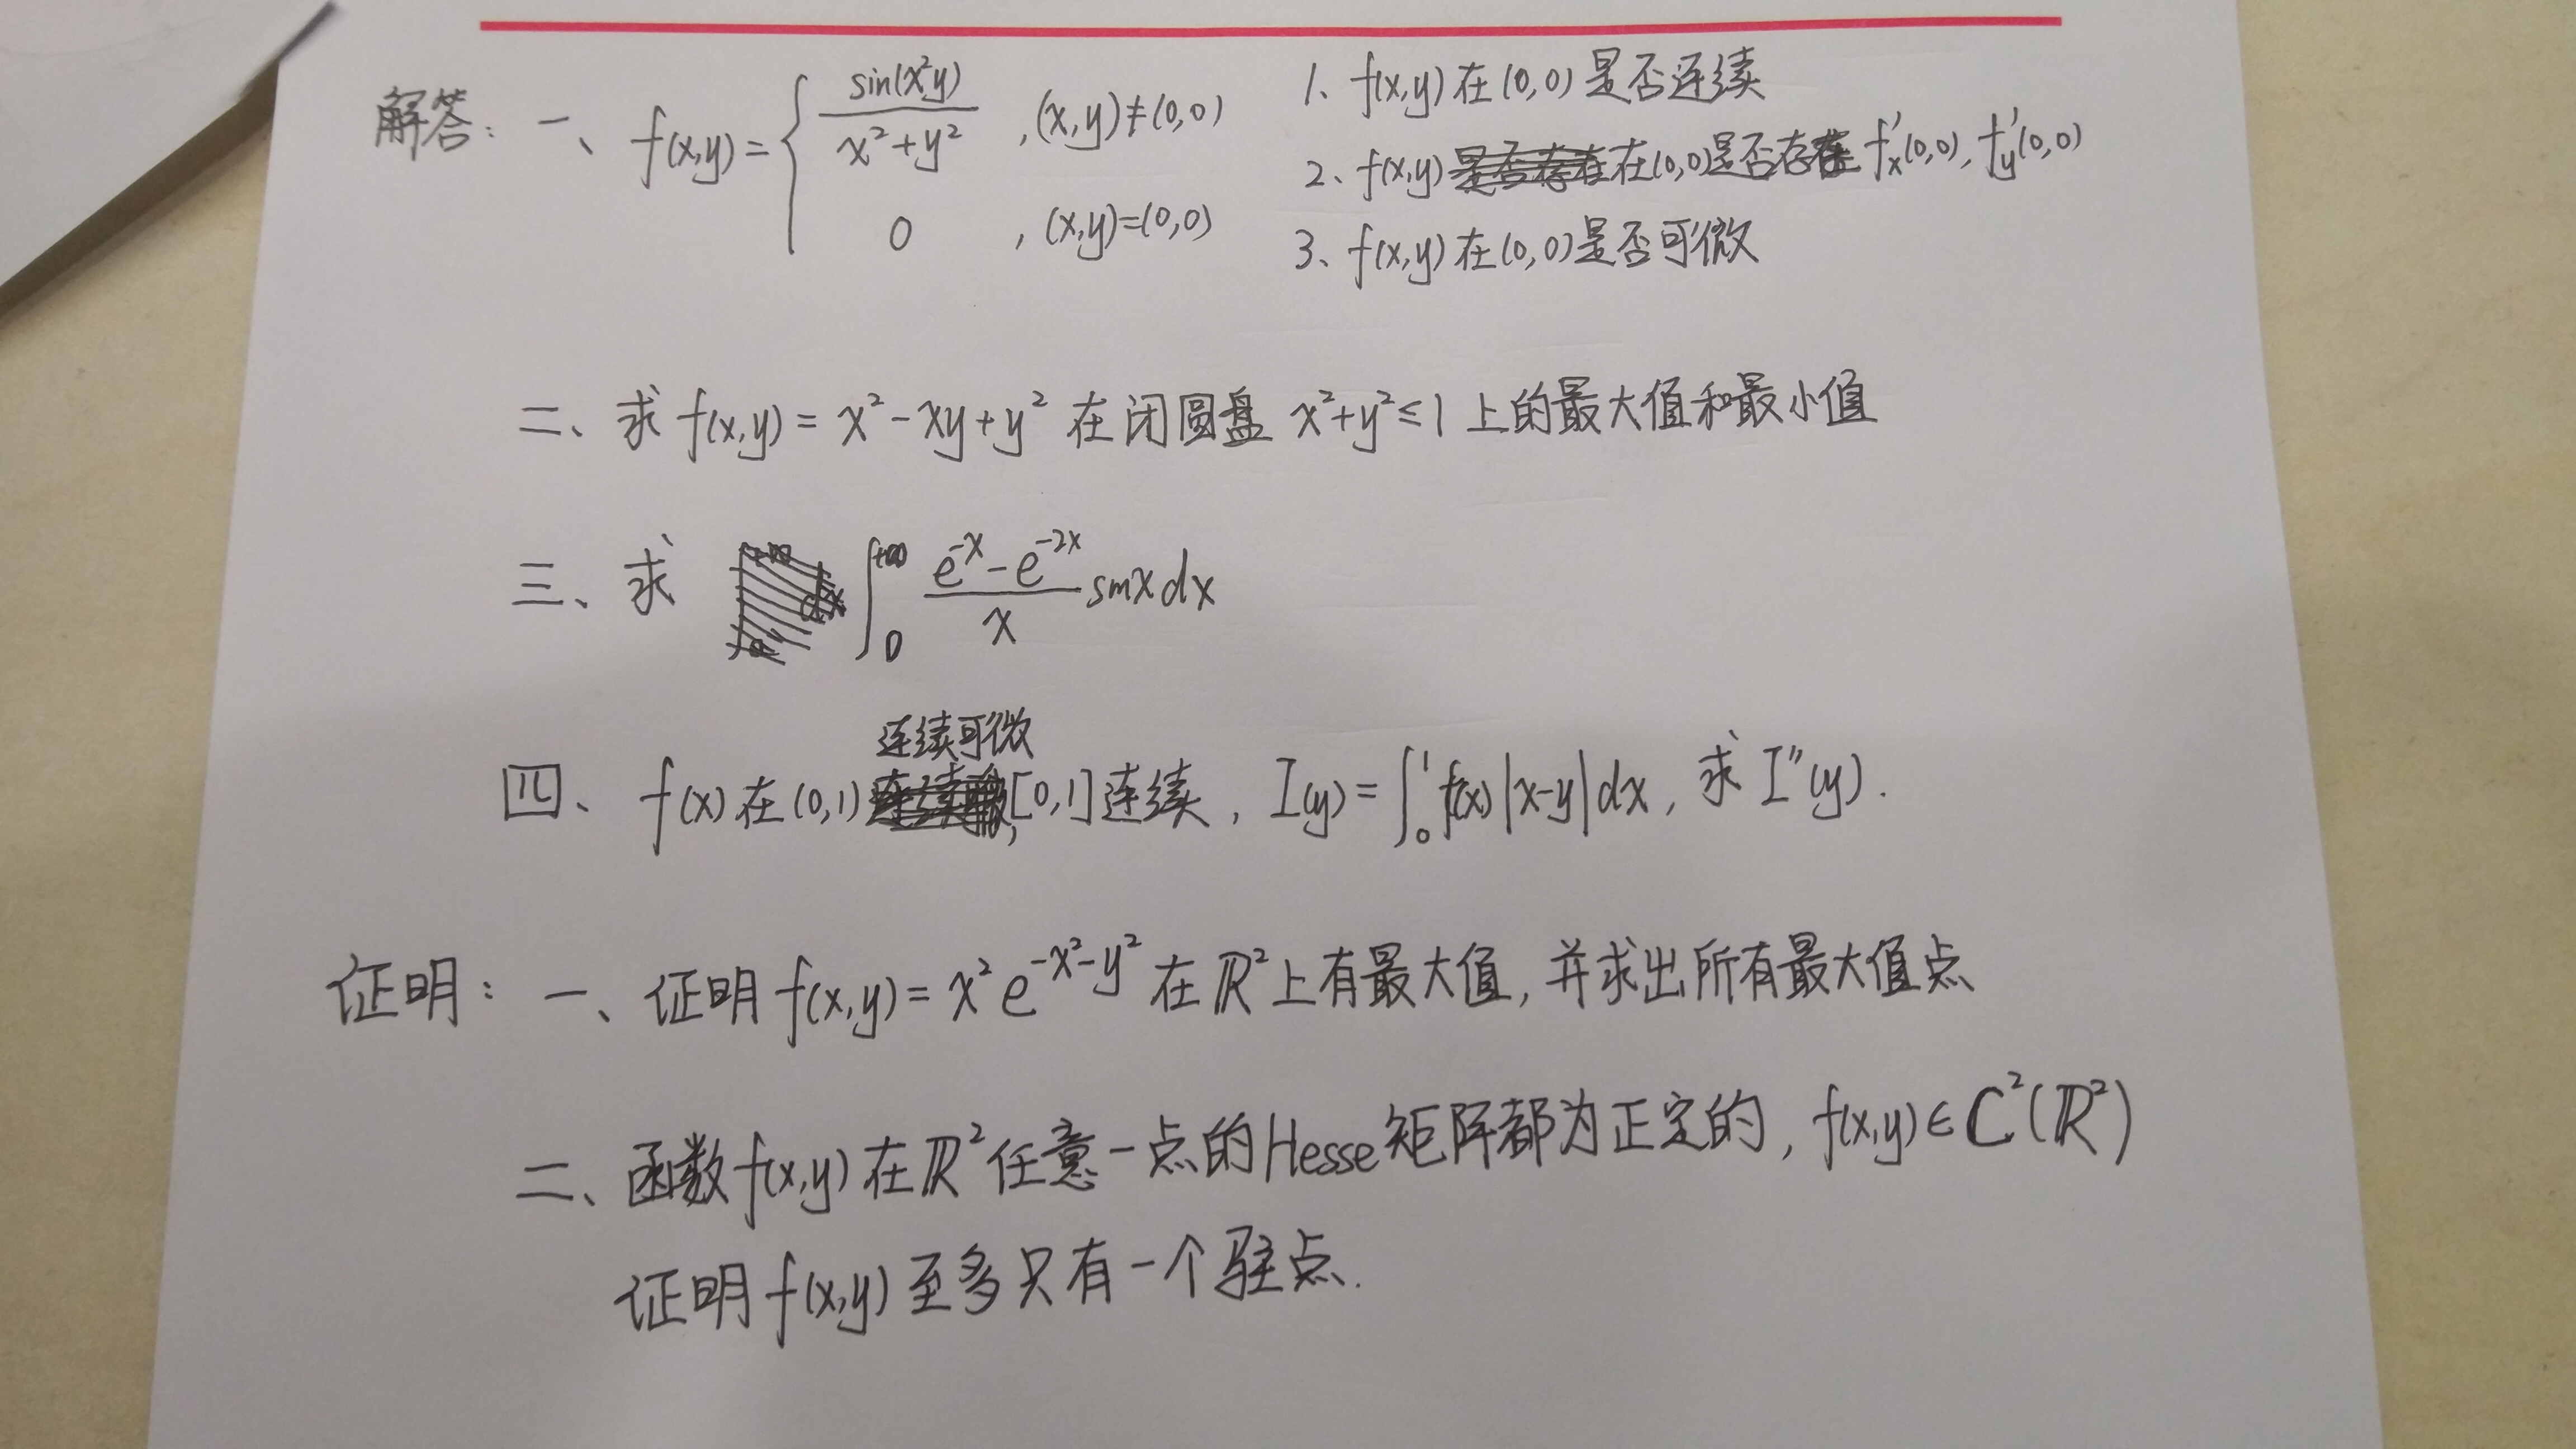 解答：一、f(x,y)= { sin(x²y)/(x²+y²) ,(x,y)≠(0,0)
0 ,(x,y)=(0,0)
1、f(x,y)在(0,0)是否连续
2、f(x,y)在(0,0)是否存在 f'x(0,0), f'y(0,0)
3、f(x,y)在(0,0)是否可微
二、求 f(x,y)= x²-xy+y² 在闭圆盘 x²+y²≤1 上的最大值和最小值
三、求 ∫₀^{+∞} (e^{-x}-e^{-2x})/x sinx dx
连续可微
四、f(x)在(0,1) ,[0,1]连续, I(y)=∫₀¹ f(x)|x-y|dx, 求 I''(y).
证明：一、证明 f(x,y)= x² e^{-x²-y²} 在 ℝ² 上有最大值, 并求出所有最大值点
二、函数 f(x,y) 在 ℝ² 任意一点的Hesse矩阵都为正定的, f(x,y)∈C²(ℝ²)
证明 f(x,y) 至多只有一个驻点.